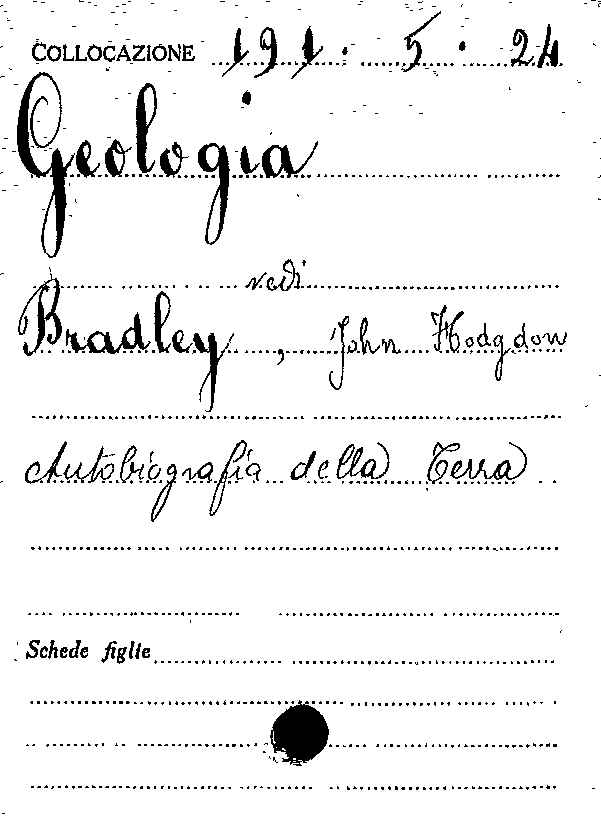 COLLOCAZIONE 191. 5. 24
Geologia
vedi
Bradley, John Hodgdon
Autobiografia della Terra
Schede figlie